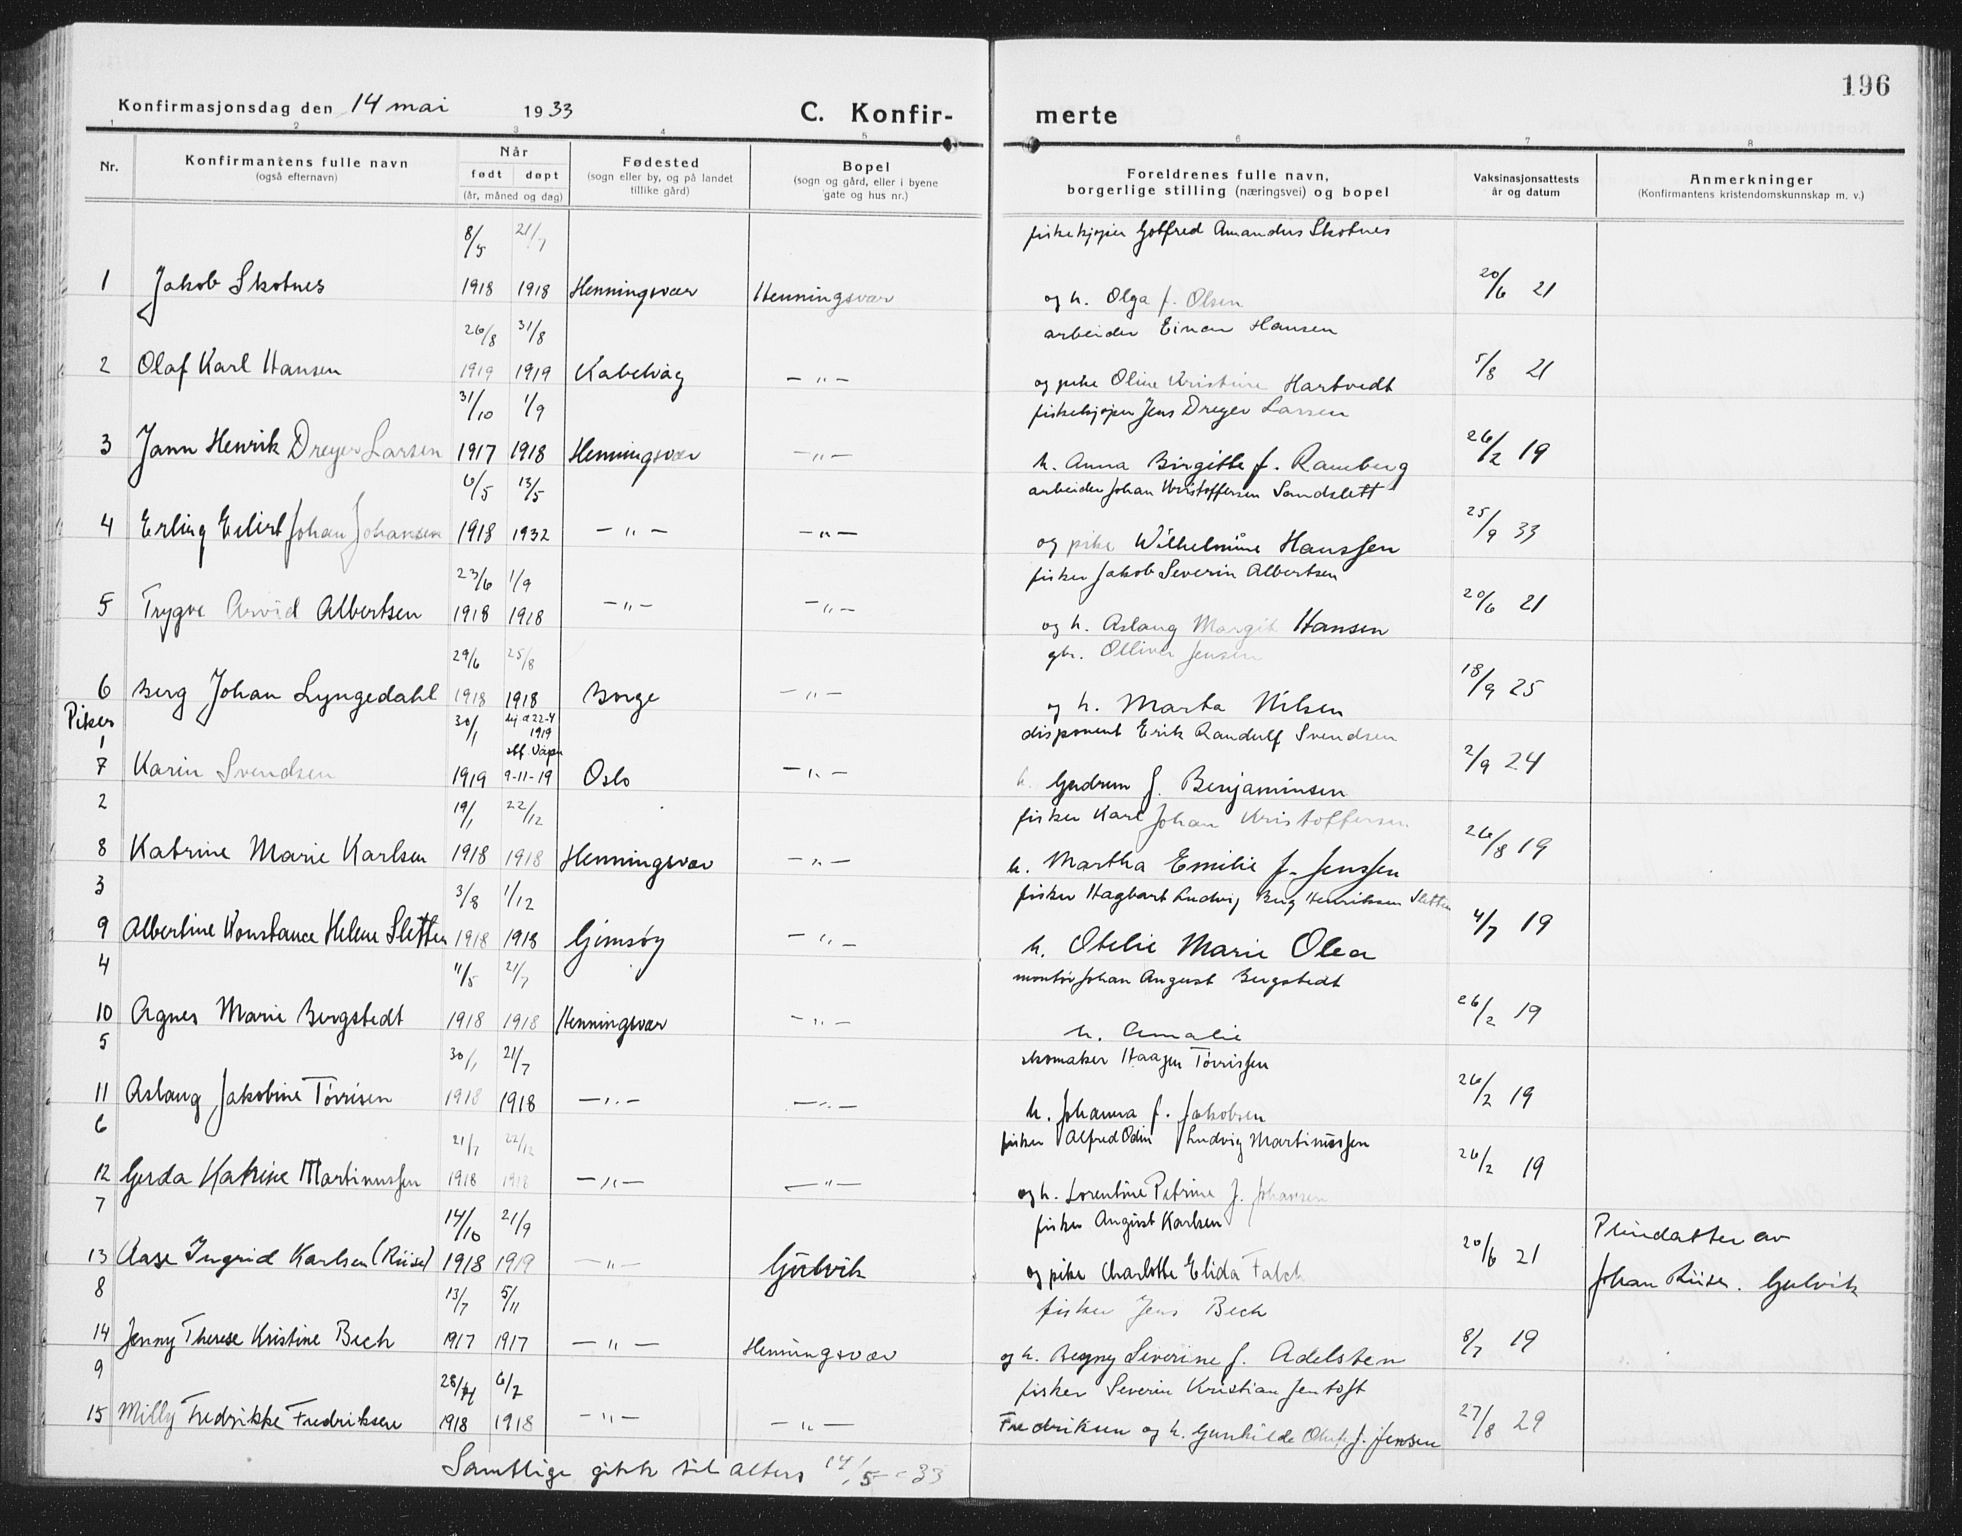 196
Konfirmasjonsdag den 14 mai 1933
C. Konfir-
merte
1 2 3 4 5 6 7 8
Nr.
Konfirmantens fulle navn
(også efternavn)
Når
født døpt
(år, måned og dag)
Fødested
(sogn eller by, og på landet
tillike gård)
Bopel
(sogn og gård, eller i byene
gate og hus nr.)
Foreldrenes fulle navn,
borgerlige stilling (næringsvei) og bopel
Vaksinasjonsattests
år og datum
Anmerkninger
(Konfirmantens kristendomskunnskap m. v.)
8/5 21/7 fiskekjøper Gotfred Amandus Skotnes
1 Jakob Skotnes 1918 1918 Henningsvær Henningsvær og h. Olga f. Olsen 20/6 21
26/8 31/8 arbeider Einar Hansen
2 Olaf Karl Hansen 1919 1919 Kabelvåg — „ — og pike Oline Kristine Hartvedt 5/8 21
31/10 1/9 fiskekjøper Jens Dreyer Larsen
3 Jann Henrik Dreyer Larsen 1917 1918 Henningsvær — „ — h. Anna Birgitte f. Ramberg 26/2 19
6/5 13/5 arbeider Johan Kristoffersen Sandslett
4 Erling Eilert Johan Johansen 1918 1932 — „ — — „ — og pike Wilhelmine Hanssen 25/9 33
23/6 1/9 fisker Jakob Severin Albertsen
5 Trygve Arvid Albertsen 1918 1918 — „ — — „ — og h. Aslaug Margit Hansen 20/6 21
29/6 25/8 gbr. Olliver Jensen
6 Berg Johan Lyngedahl 1918 1918 Borge — „ — og h. Marta Nilsen 18/9 25
Piker
1 30/1 22-4 1919 disponent Erik Randulf Svendsen
7 Karin Svendsen 1919 9-11-19 Oslo — „ — h. Gudrun f. Benjaminsen 2/9 24
2 19/1 22/12 fisker Karl Johan Kristoffersen
8 Katrine Marie Karlsen 1918 1918 Henningsvær — „ — h. Martha Emilie f. Jenssen 26/8 19
3 3/8 1/12 fisker Hagbart Ludvig Berg Henriksen Sletten
9 Albertine Konstance Helene Sletten 1918 1918 Gimsøy — „ — h. Otelie Marie Olea 4/7 19
4 11/5 21/7 montør Johan August Bergstedt
10 Agnes Marie Bergstedt 1918 1918 Henningsvær — „ — h. Amalie 26/2 19
5 30/1 21/7 skomaker Haagen Tørrissen
11 Aslaug Jakobine Tørrisen 1918 1918 — „ — — „ — h. Johanna f. Jakobsen 26/2 19
6 21/7 22/12 fisker Alfred Odin Ludvig Martinussen
12 Gerda Katrine Martinussen 1918 1918 — „ — — „ — og h. Lorentine Petrine f. Johansen 26/2 19
7 14/10 21/9 fisker August Karlsen
13 Aase Ingrid Karlsen (Riise) 1918 1919 — „ — Gulvik og pike Charlotte Elida Falch 20/6 21 Pleiedatter av
Johan Riise. Gulvik
8 13/7 5/11 fisker Jens Bech
14 Jenny Therese Kristine Bech 1917 1917 — „ — Henningsvær og h. Severine f. Adelsten 8/7 19
9 6/7 fisker Severin Kristian Jentoft
15 Milly Fredrikke Fredriksen 1918 1918 — „ — — „ — Fredriksen og h. Gunhilde f. Jensen 27/8 29
Samtlige gikk til alters 14/5 - 33